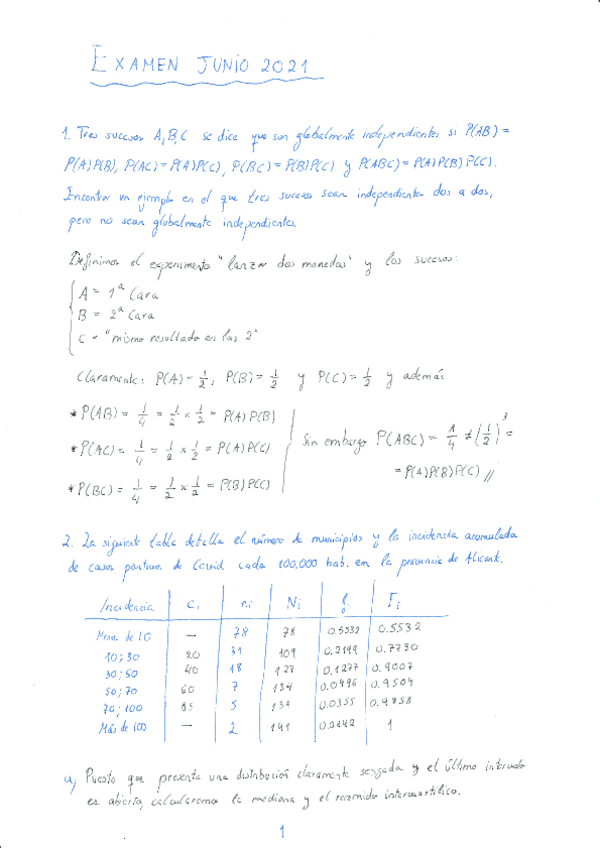 EXAMEN JUNIO 2021
1. Tres sucesos A, B, C se dice que son globalmente independientes si P(AB) =
P(A)P(B), P(AC) = P(A)P(C), P(BC) = P(B)P(C) y P(ABC) = P(A)P(B)P(C).
Encontrar un ejemplo en el que tres sucesos sean independientes dos a dos,
pero no sean globalmente independientes.
Definimos el experimento "lanzar dos monedas" y los sucesos:
A = 1ª Cara
B = 2ª Cara
C = "mismo resultado en las 2"
Claramente: P(A) = 1/2, P(B) = 1/2 y P(C) = 1/2 y además
* P(AB) = 1/4 = 1/2 × 1/2 = P(A)P(B)
* P(AC) = 1/4 = 1/2 × 1/2 = P(A)P(C)
* P(BC) = 1/4 = 1/2 × 1/2 = P(B)P(C)
Sin embargo P(ABC) = 1/4 ≠ (1/2)³ =
= P(A)P(B)P(C) //
2. La siguiente tabla detalla el número de municipios y la incidencia acumulada
de casos por Covid cada 100.000 hab. en la provincia de Alicante.
Incidencia Ci ni Ni fi Fi
Menos de 10 — 78 78 0.5532 0.5532
10;30 20 31 109 0.2199 0.7730
30;50 40 18 127 0.1277 0.9007
50;70 60 7 134 0.0496 0.9504
70;100 85 5 139 0.0355 0.9858
Más de 100 — 2 141 0.0142 1
a) Puesto que presenta una distribución claramente sesgada y el último intervalo
es abierto, calcularemos la mediana y el recorrido intercuartílico.
1